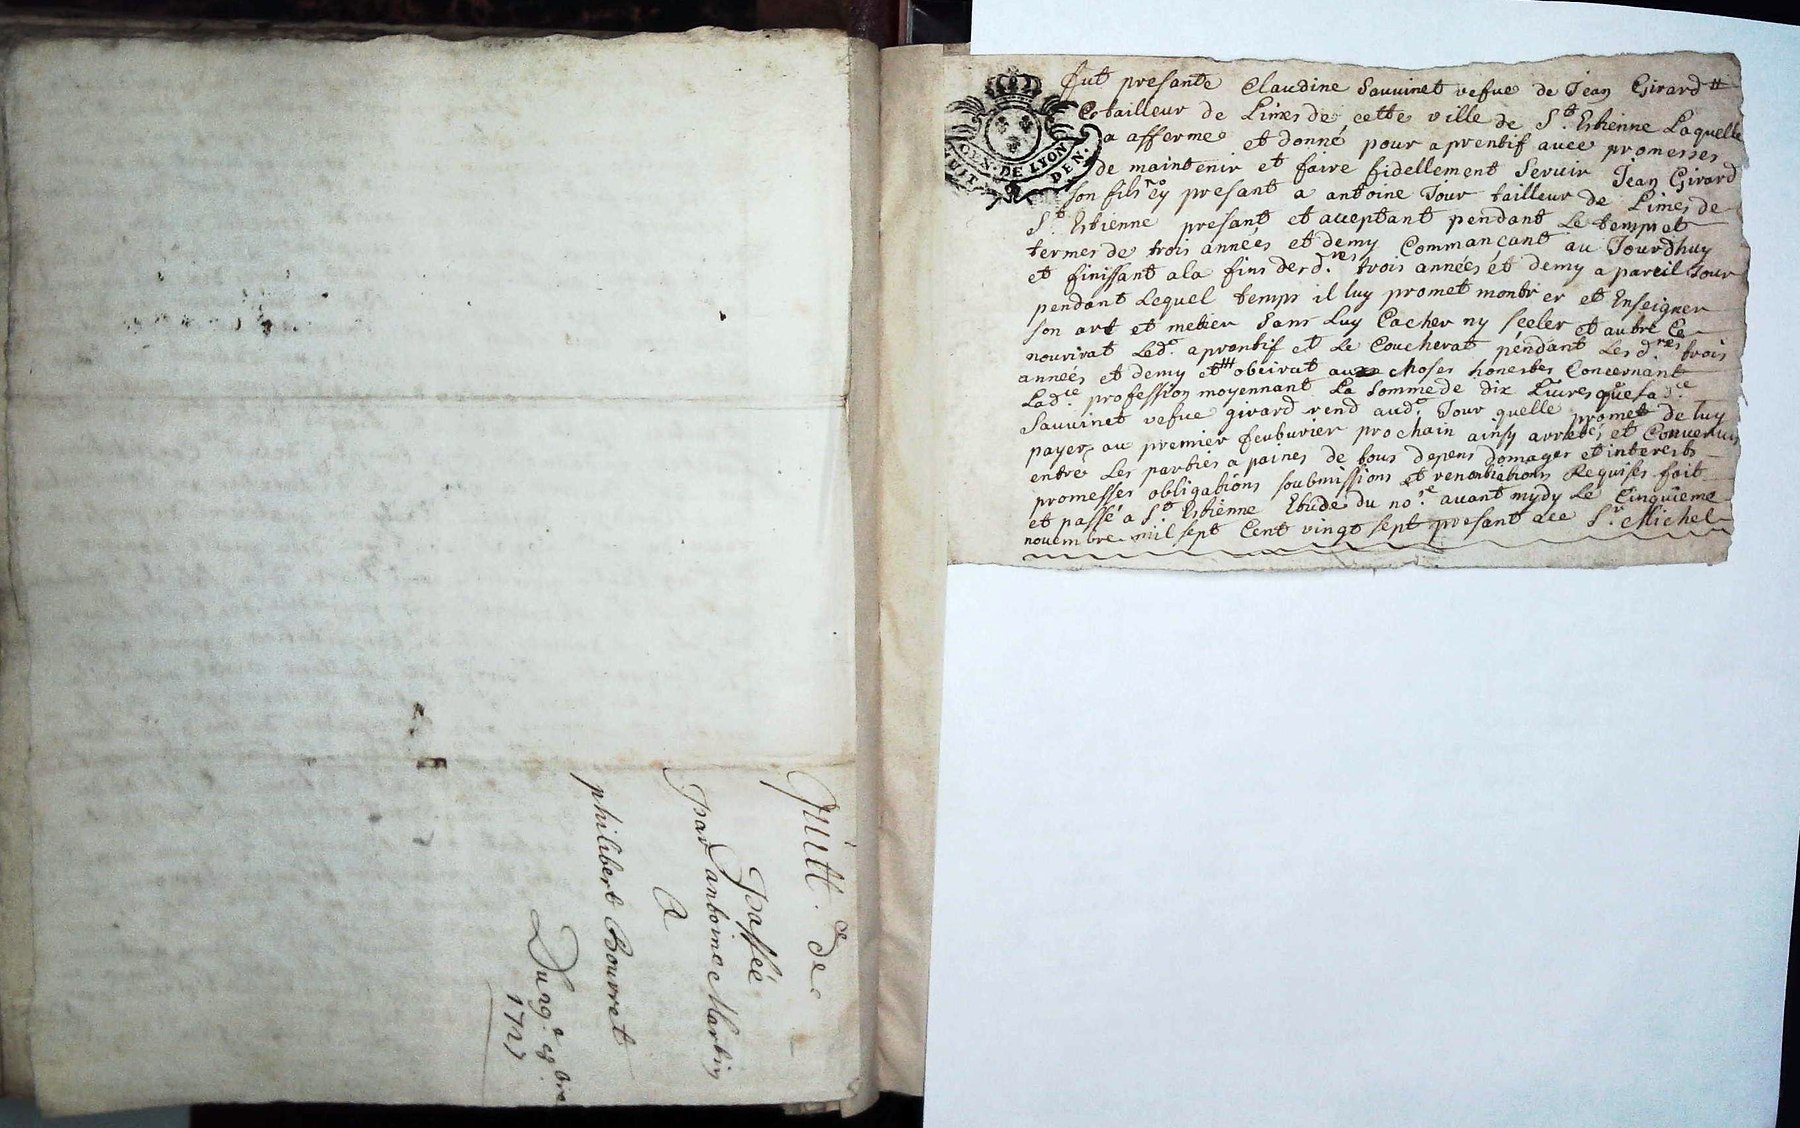 Quitt.ce de
Passée
Par antoine Martin
A
philibert Bouvret
Du 29.e 9bre
1727
GEN. DE LYON
HUIT DEN.
fut presante Claudine Sauvinet vefue de Jean Girard
tailleur de Limes de cette ville de St. Estienne Laquelle
a affermé et donné pour aprentif avec promesses
de maintenir et faire fidellement Servir Jean Girard
son fils icy presant a antoine Jour tailleur de Limes de
St. Estienne presant et acceptant pendant Le temps et
termes de trois années et demy Commançant au Jourdhuy
et finissant ala fins desd.res trois années et demy a pareil Jour
pendant Lequel temps il luy promet montrer et Enseigner
son art et metier Sans Luy Cacher ny séeler et autre Ce
nourirat Led.e aprentif et Le Coucherat pendant Les d.res trois
années et demy et obeirat aux choses honestes Concernant
Lad.te profession moyennant La Somme de dix Livres que lad.te
Sauvinet vefue girard rend aud. Jour quelle promet de luy
payer au premier feubvrier prochain ainsy arrêtés et Convenus
entre Les parties a paines de tous depens domages et interests
promesses obligations soubmissions et renontiations Requises fait
et passé a St. Estienne Etude du no.re avant mydy Le Cinquieme
novembre mil sept Cent vingt sept presant a ce Sr. Michel